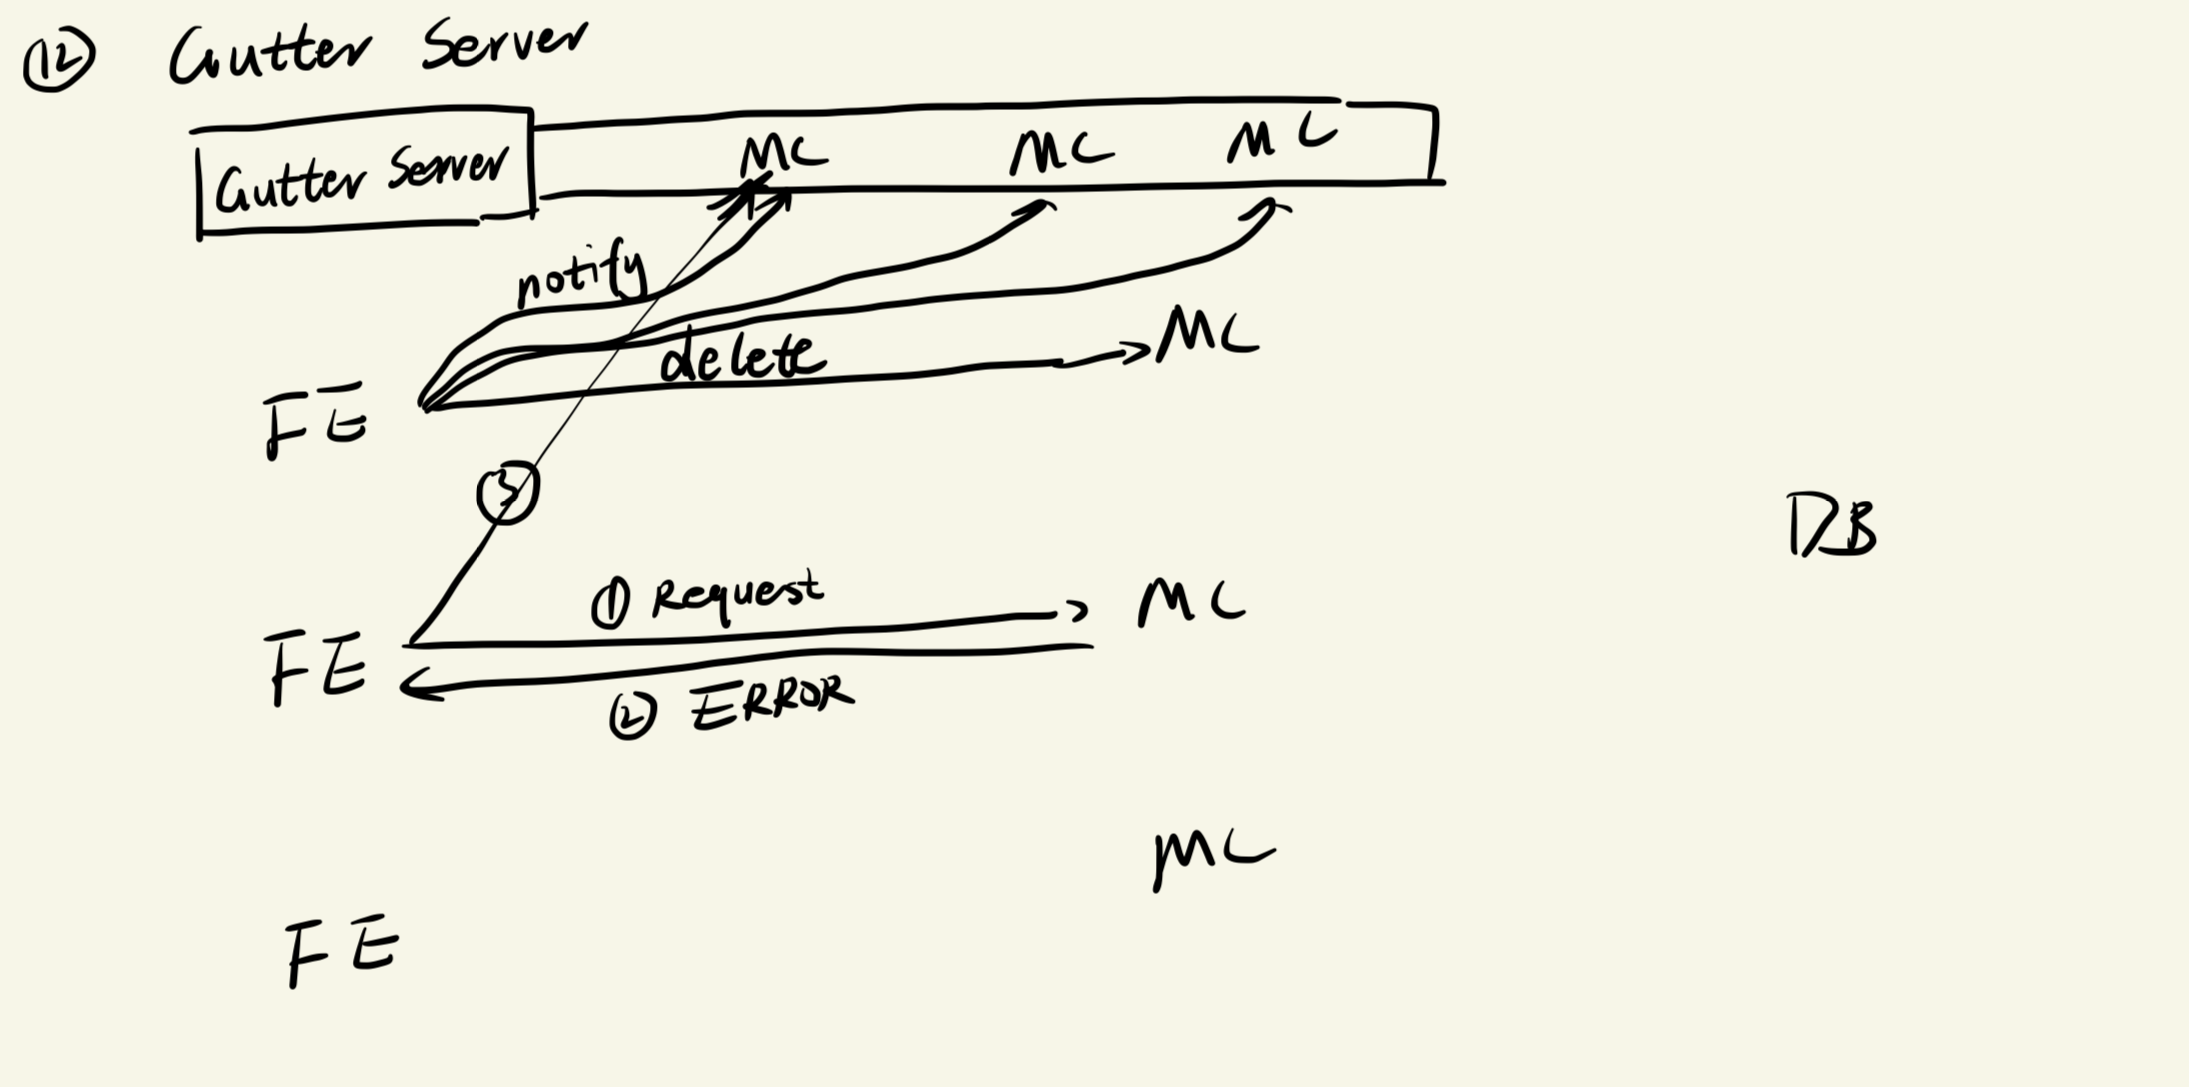 ⑫ Gutter Server
Gutter Server MC MC MC
notify
delete MC
FE
③
DB
① Request MC
FE
② ERROR
MC
FE